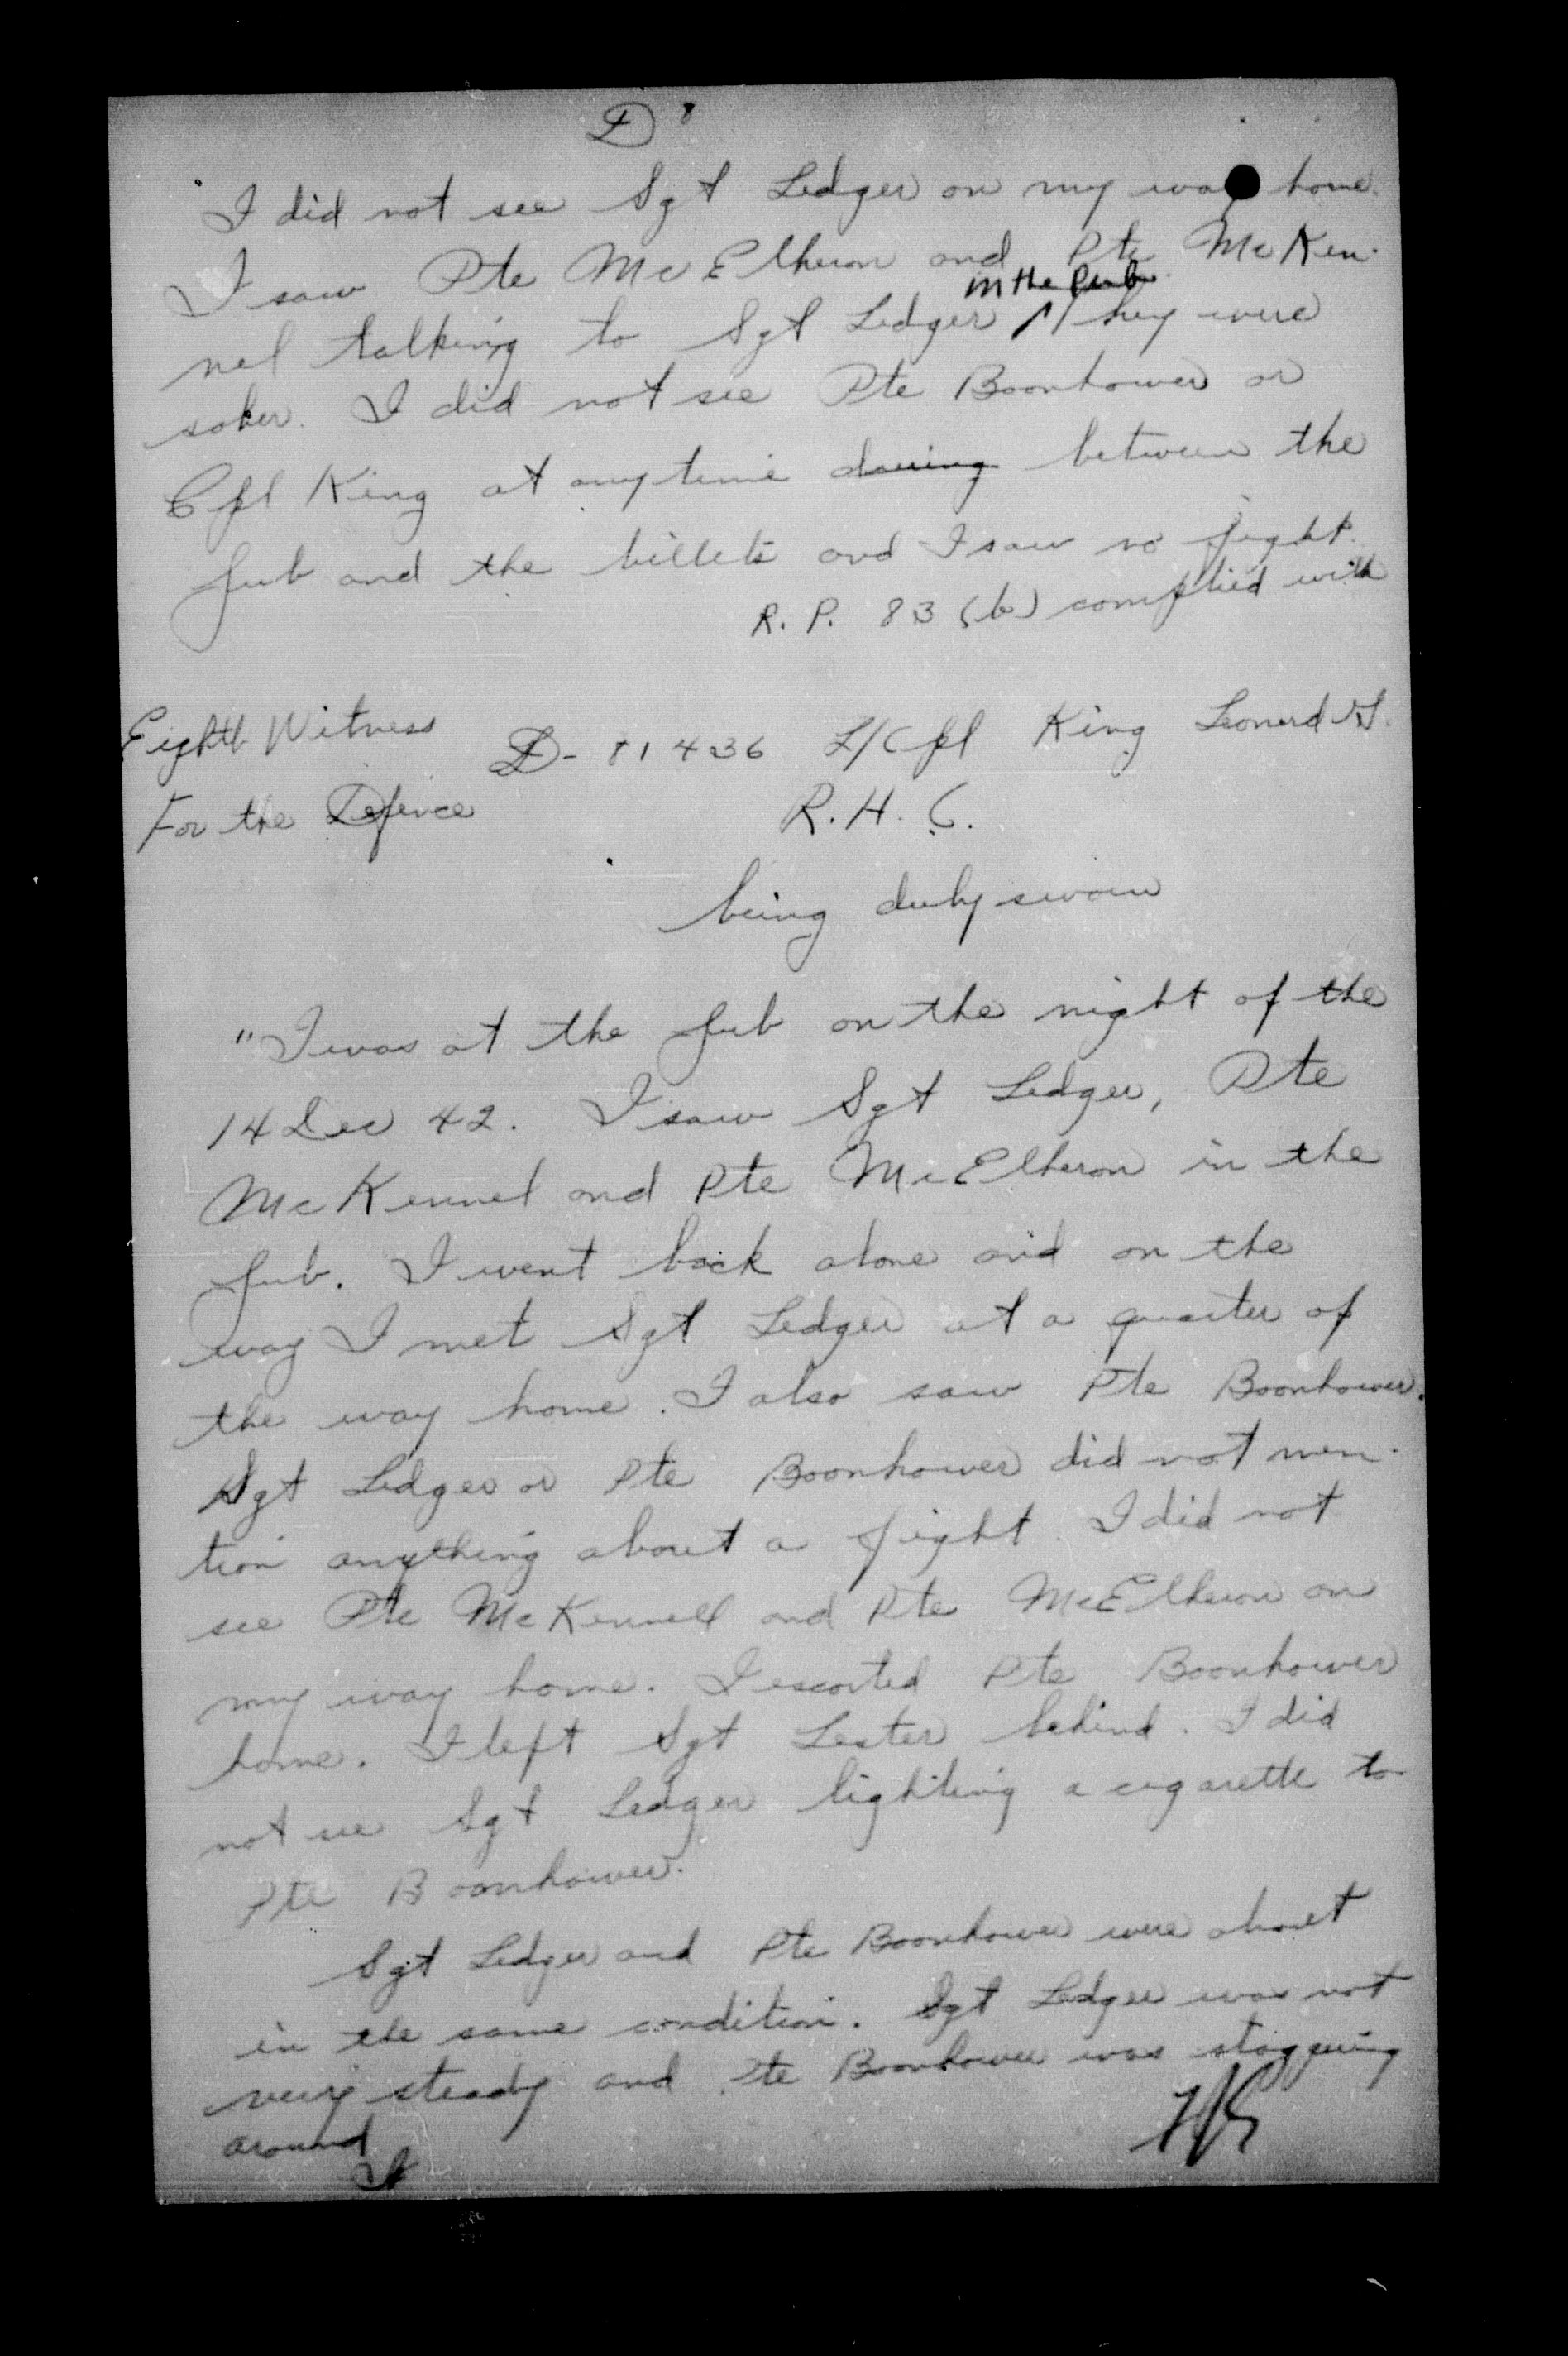 D 8
I did not see Sgt Ledger on my way home.
I saw Pte McElheron and Pte McKen-
nel talking to Sgt Ledger in the Pub. They were
sober. I did not see Pte Boonhower or
Cpl King at anytime during between the
pub and the billets and I saw no fight.
R.P. 83 (b) complied with
Eighth Witness
For the Defence
D-81436 L/Cpl King Leonard
R.H.C.
being duly sworn
"I was at the pub on the night of the
14 Dec 42. I saw Sgt Ledger, Pte
McKennel and Pte McElheron in the
pub. I went back alone and on the
way I met Sgt Ledger at a quarter of
the way home. I also saw Pte Boonhower.
Sgt Ledger or Pte Boonhower did not men-
tion anything about a fight. I did not
see Pte McKennell and Pte McElheron on
my way home. I escorted Pte Boonhower
home. I left Sgt Lester behind. I did
not see Sgt Ledger lighting a cigarette to
Pte Boonhower.
Sgt Ledger and Pte Boonhower were about
in the same condition. Sgt Ledger was not
very steady and Pte Boonhower was staggering
around